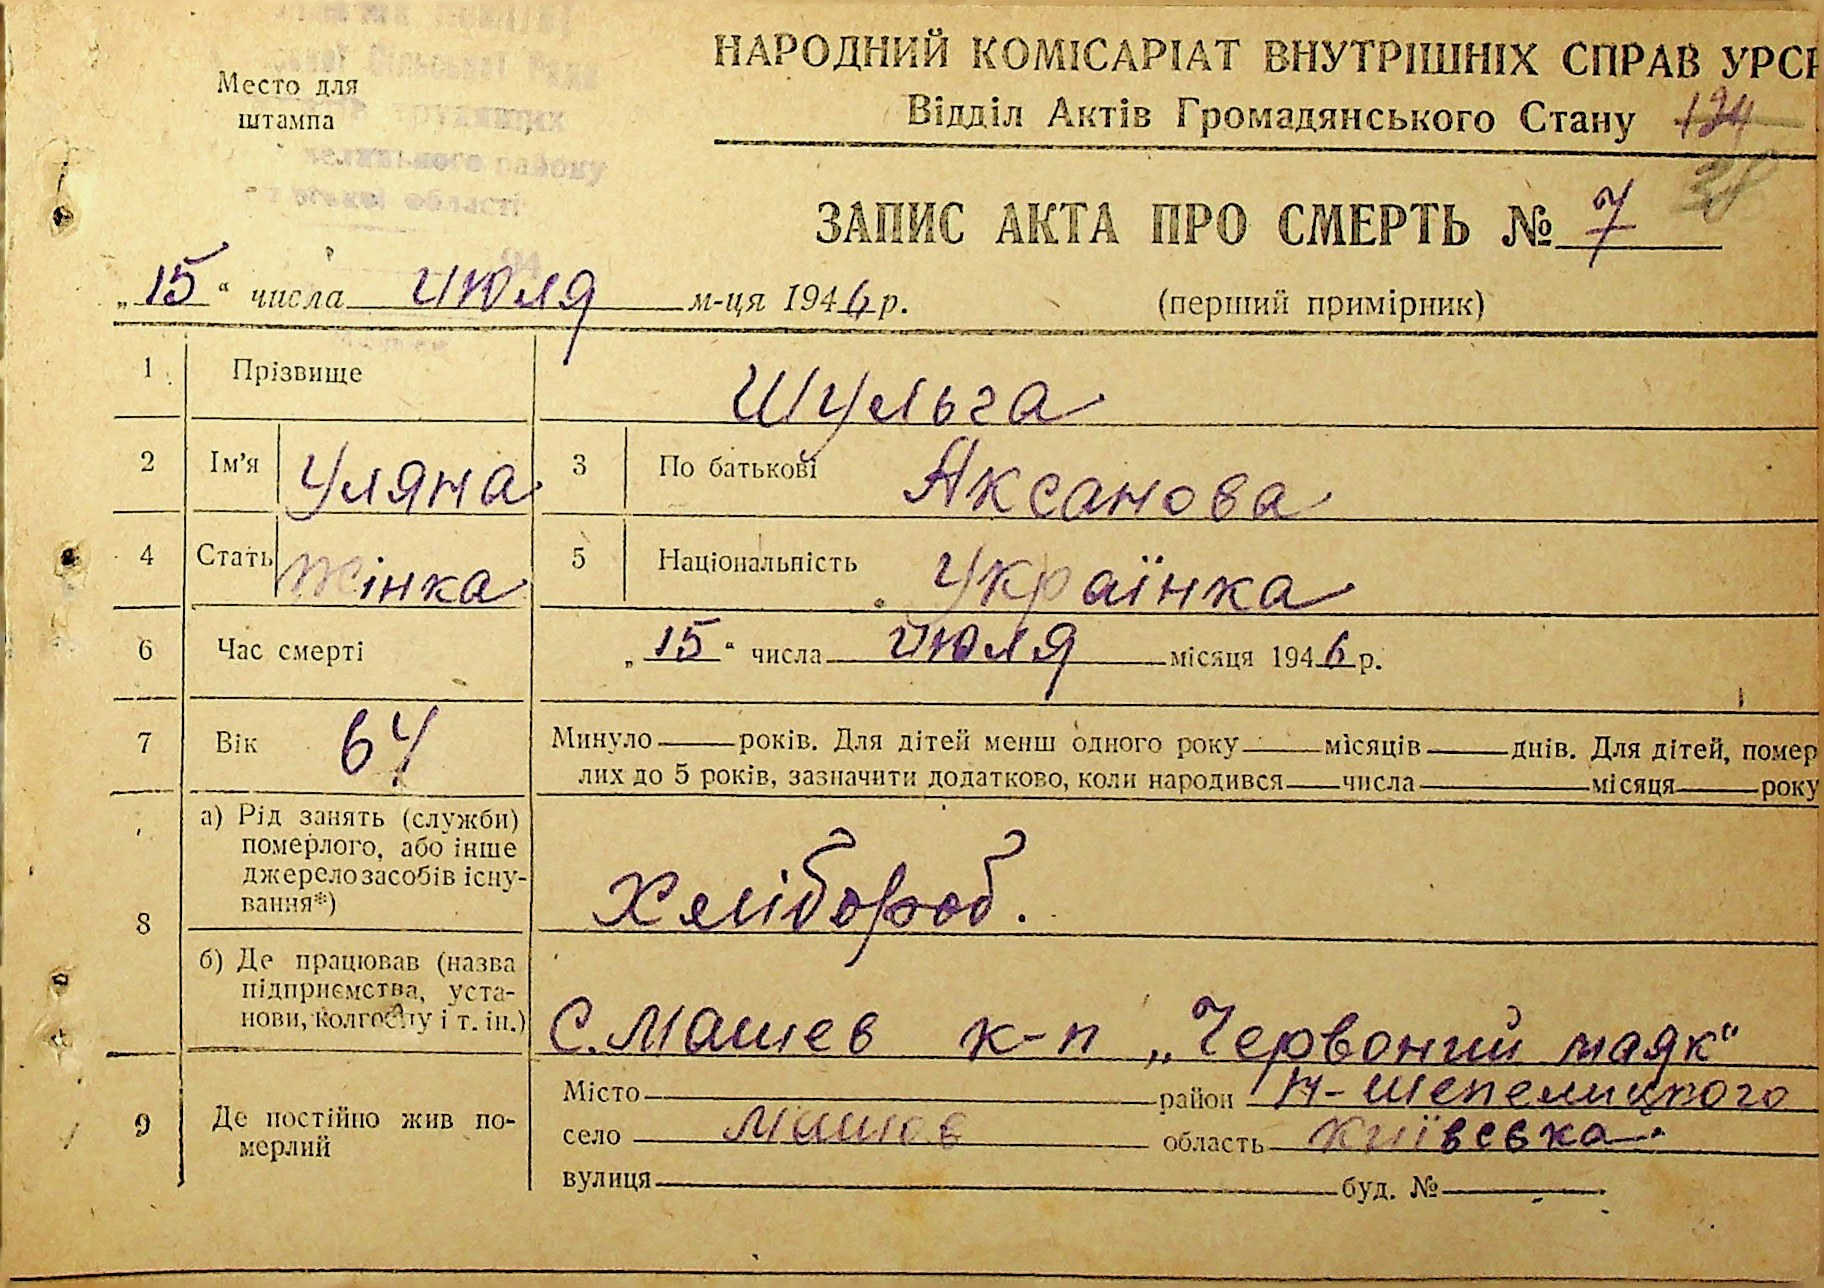 НАРОДНИЙ КОМІСАРІАТ ВНУТРІШНІХ СПРАВ УРСР
Відділ Актів Громадянського Стану 134
38
Место для
штампа
Сільської Ради
трудящих
району
області
ЗАПИС АКТА ПРО СМЕРТЬ № 7
„15“ числа июля м-ця 1946 р. (перший примірник)
1 Прізвище Шульга
2 Ім'я Уляна 3 По батькові Аксанова
4 Стать Жінка 5 Національність Українка
6 Час смерті „15“ числа июля місяця 1946 р.
7 Вік 64 Минуло років. Для дітей менш одного року місяців днів. Для дітей, помер
лих до 5 років, зазначити додатково, коли народився числа місяця року
8 а) Рід занять (служби)
померлого, або інше
джерело засобів існу-
вання*)
Хлібороб.
б) Де працював (назва
підприємства, уста-
нови, колгоспу і т. ін.)
С. Машев к-п „Червоний маяк“
9 Де постійно жив по-
мерлий
Місто район Н-Шепелицкого
село Машов область Київська
вулиця буд. №